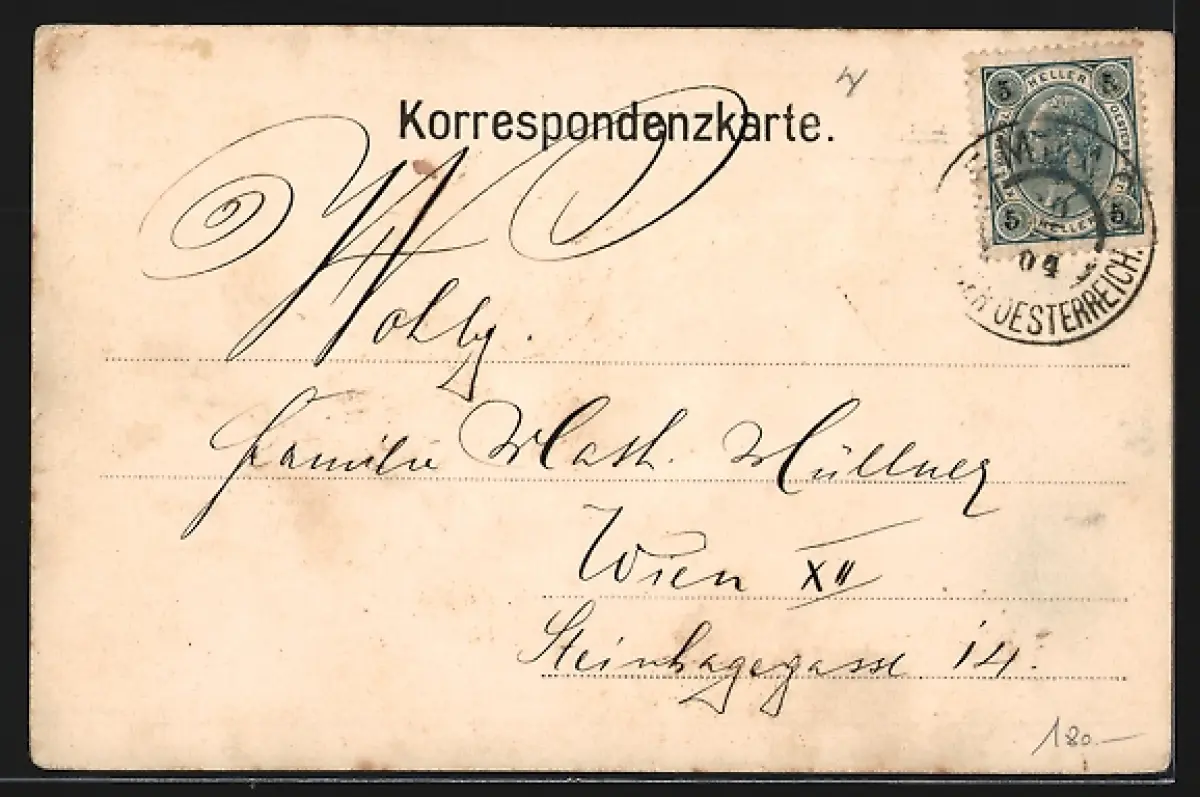 Korrespondenzkarte.
5 HELLER 5
5 HELLER 5
04
OESTERREICH.
Wohlg.
Familie Math. Müllner
Wien XII
Steinhagegasse 14.
180.—